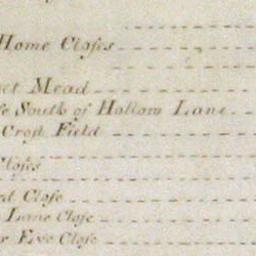 Home Closes
Mead
South of Hollow Lane
Cross Field
Closes
Close
Lane Close
Five Close